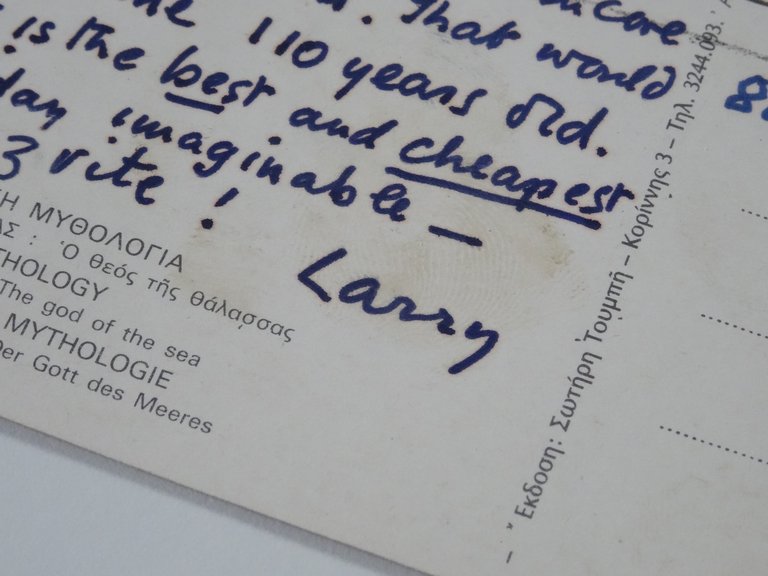 . That would
110 years old.
is the best and cheapest
imaginable —
3 rite !
Larry
Η ΜΥΘΟΛΟΓΙΑ
ΑΣ : Ὁ θεός τῆς θάλασσας
THOLOGY
The god of the sea
MYTHOLOGIE
Der Gott des Meeres
– Ἔκδοση: Σωτήρη Τουμπή – Κορίννης 3 – Τηλ. 3244.093.